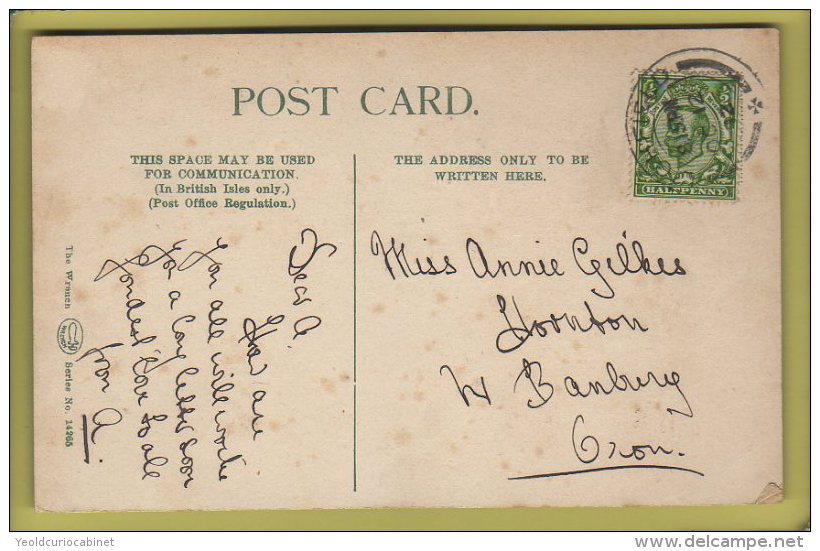 POST CARD.
THIS SPACE MAY BE USED
FOR COMMUNICATION.
(In British Isles only.)
(Post Office Regulation.)
THE ADDRESS ONLY TO BE
WRITTEN HERE.
HALFPENNY
Dear A.
How are
you all will write
you a long letter soon
fondest love to all
from A.
Miss Annie Gilkes
Hornton
Nr Banbury
Oxon.
The Wrench
Series No. 14265
Yeoldcuriocabinet
www.delcampe.net